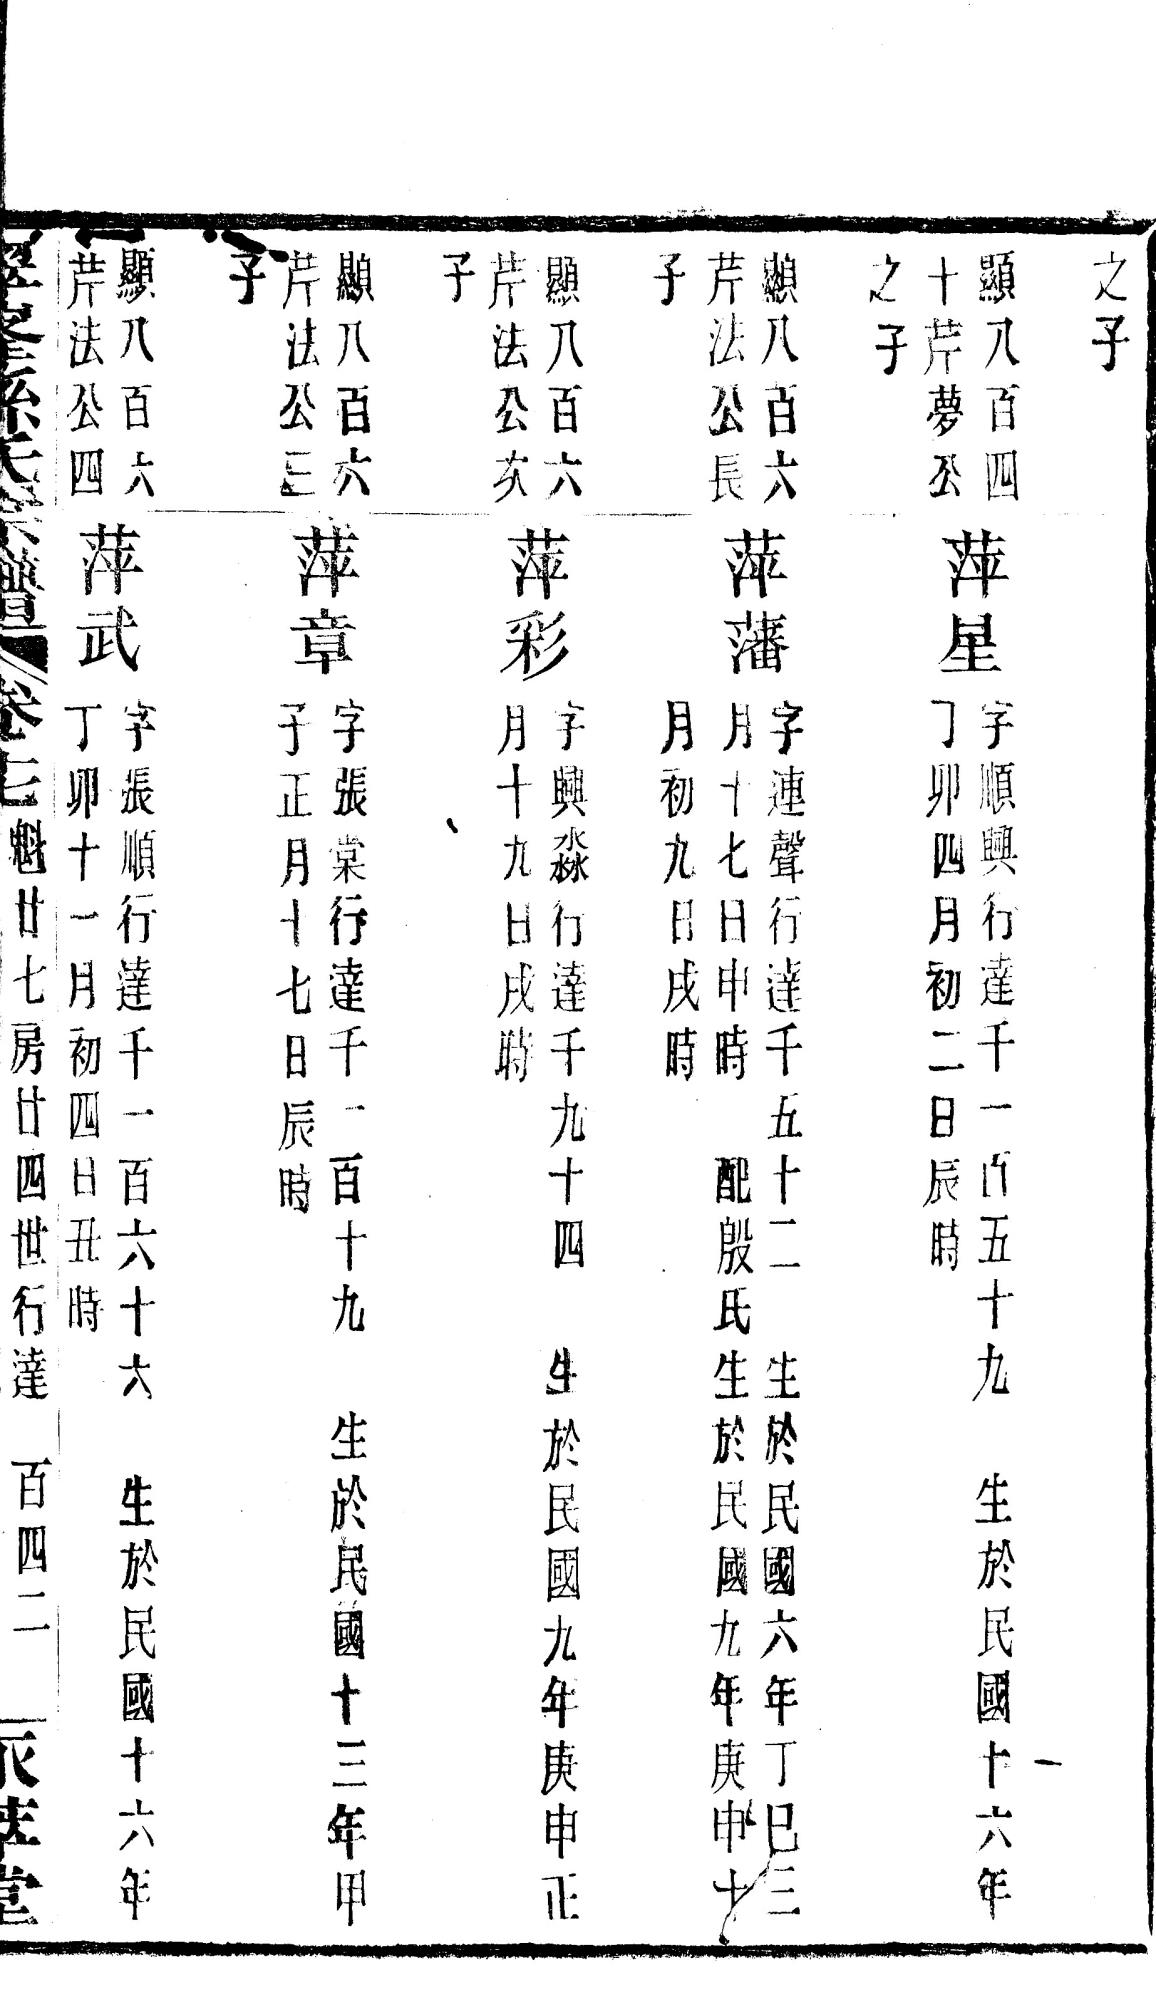 之子
顯八百四
十芹夢公
之子
萍星
字順興行達千一百五十九　生於民國十六年
丁卯四月初二日辰時
顯八百六
芹法公長
子
萍藩
字連聲行達千五十二　生於民國六年丁巳三
月十七日申時　配殷氏生於民國九年庚申十
月初九日戌時
顯八百六
芹法公次
子
萍彩
字興淼行達千九十四　生於民國九年庚申正
月十九日戌時
顯八百六
芹法公三
子
萍章
字張棠行達千一百十九　生於民國十三年甲
子正月十七日辰時
顯八百六
芹法公四
萍武
字張順行達千一百六十六　生於民國十六年
丁卯十一月初四日丑時
孫氏宗譜　卷七　魁廿七房廿四世行達　百四二　堂